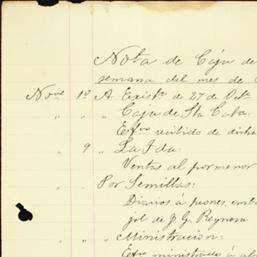 Nota de Caja de
semana del mes de
Nove 1º A Exista de 27 de Octe
" " Caja de Sta Cata:
Extvo recibido de dicha
" 9 " La Fda:
Ventas al por menor
" " Por Semillas:
Diarios á peones, emb
jol de J. G. Reynosa
" " " Ministracion:
Extvo ministrado á al